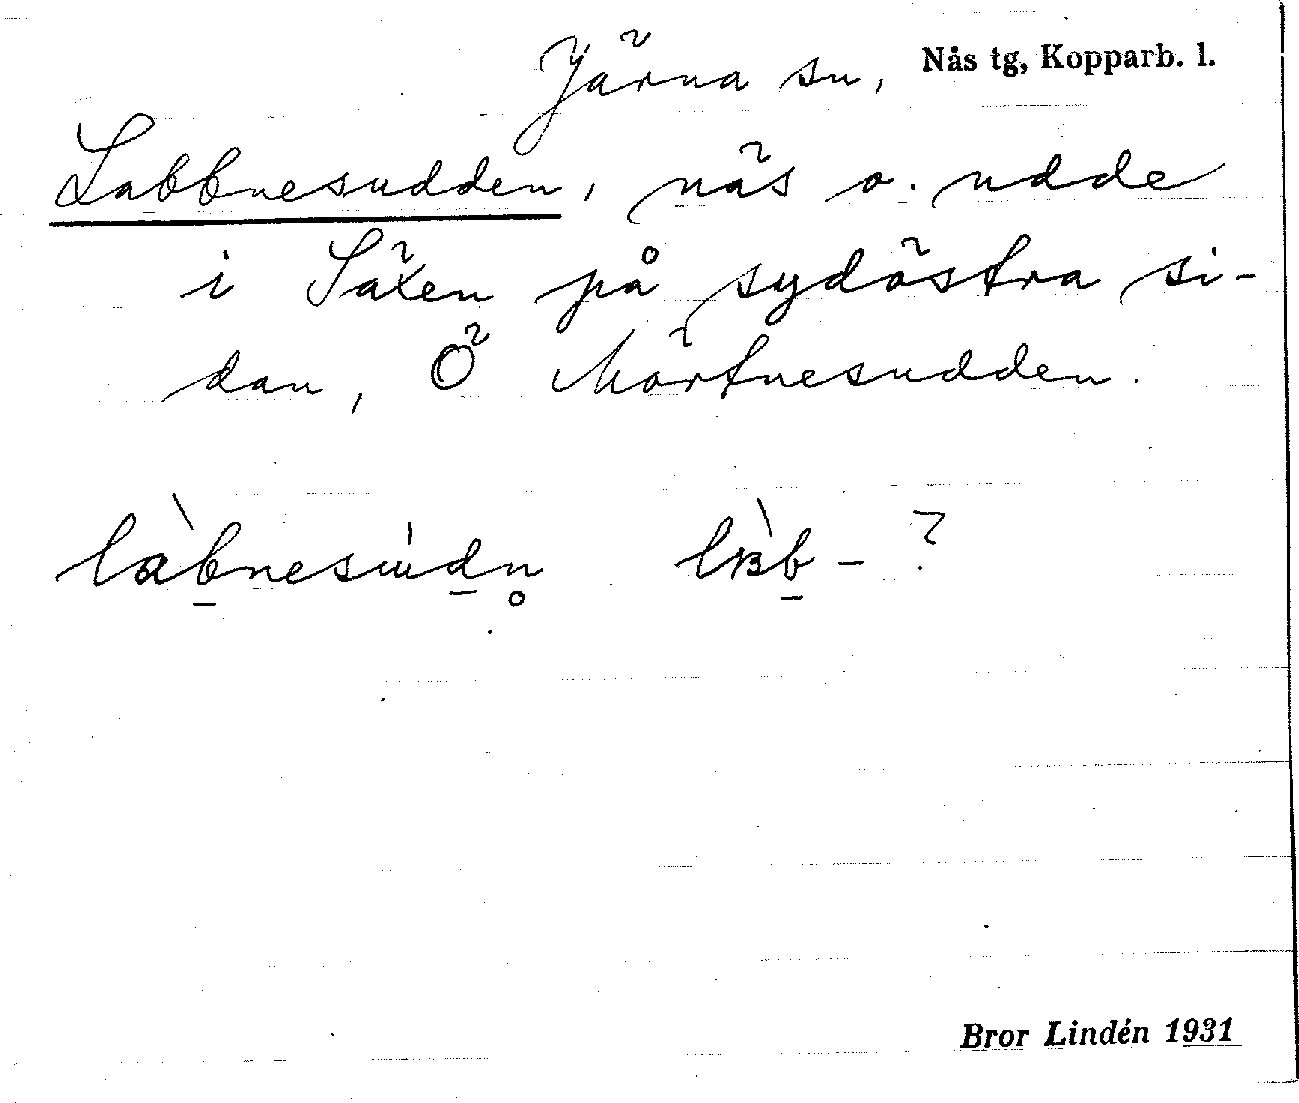 Järna sn, Nås tg, Kopparb. l.
Labbnesudden, näs o. udde
i Säxen på sydöstra si-
dan, Ö Mörtnesudden.
làb̲nesùd̲n̥ lɐ̀b̲- ?
Bror Lindén 1931